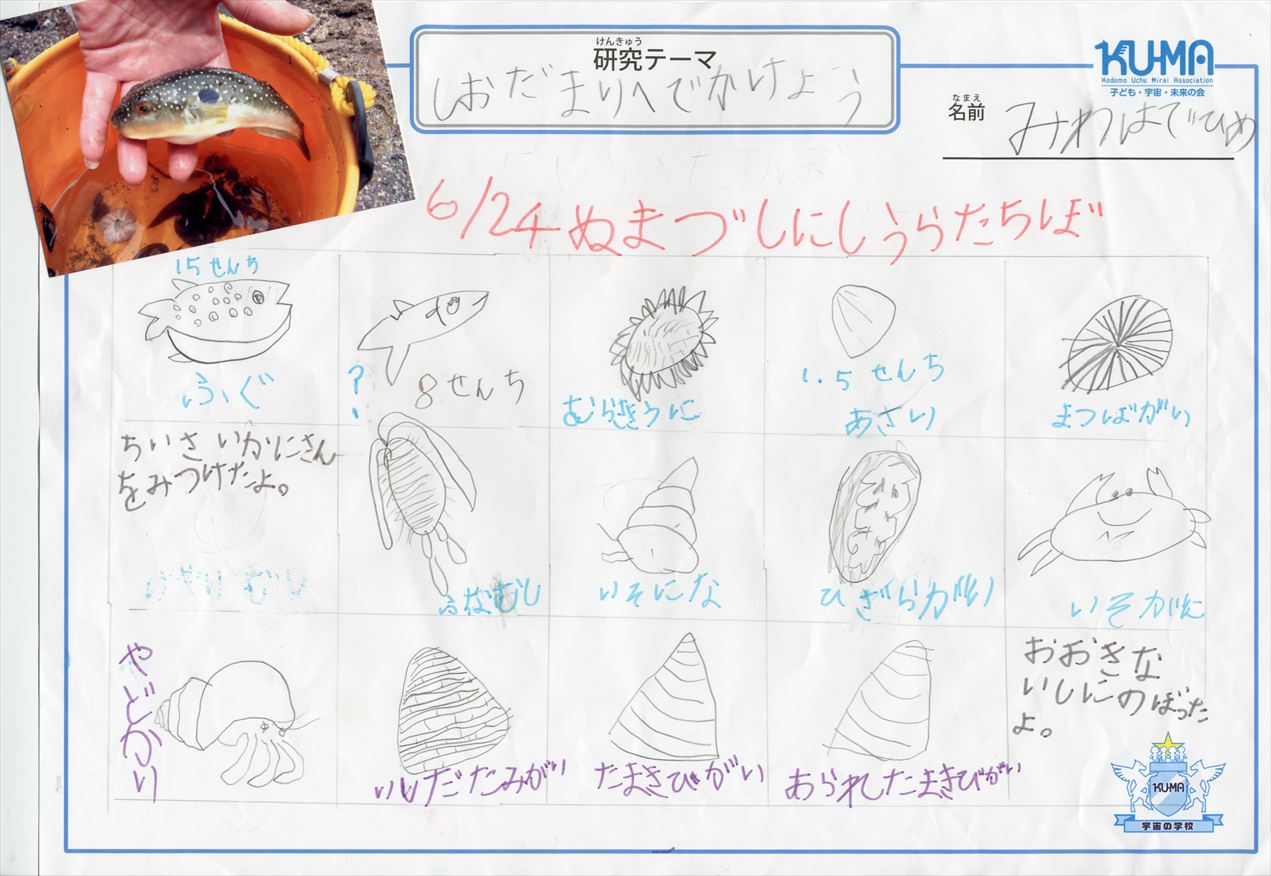 けんきゅう
研究テーマ
しおだまりへでかけよう
KUMA
Kodomo Uchu Mirai Association
子ども・宇宙・未来の会
なまえ
名前
みわはでひめ
6/24ぬまづしにしうらたちば
15せんち
ふぐ
?
8せんち
むらさきうに
1.5せんち
あさり
まつばがい
ちいさいかにさん
をみつけたよ。
ふなむし
いそにな
ひざらがい
いそがに
やどかり
いしだたみがい
たまきびがい
あられたまきびがい
おおきな
いしにのぼった
よ。
KUMA
宇宙の学校